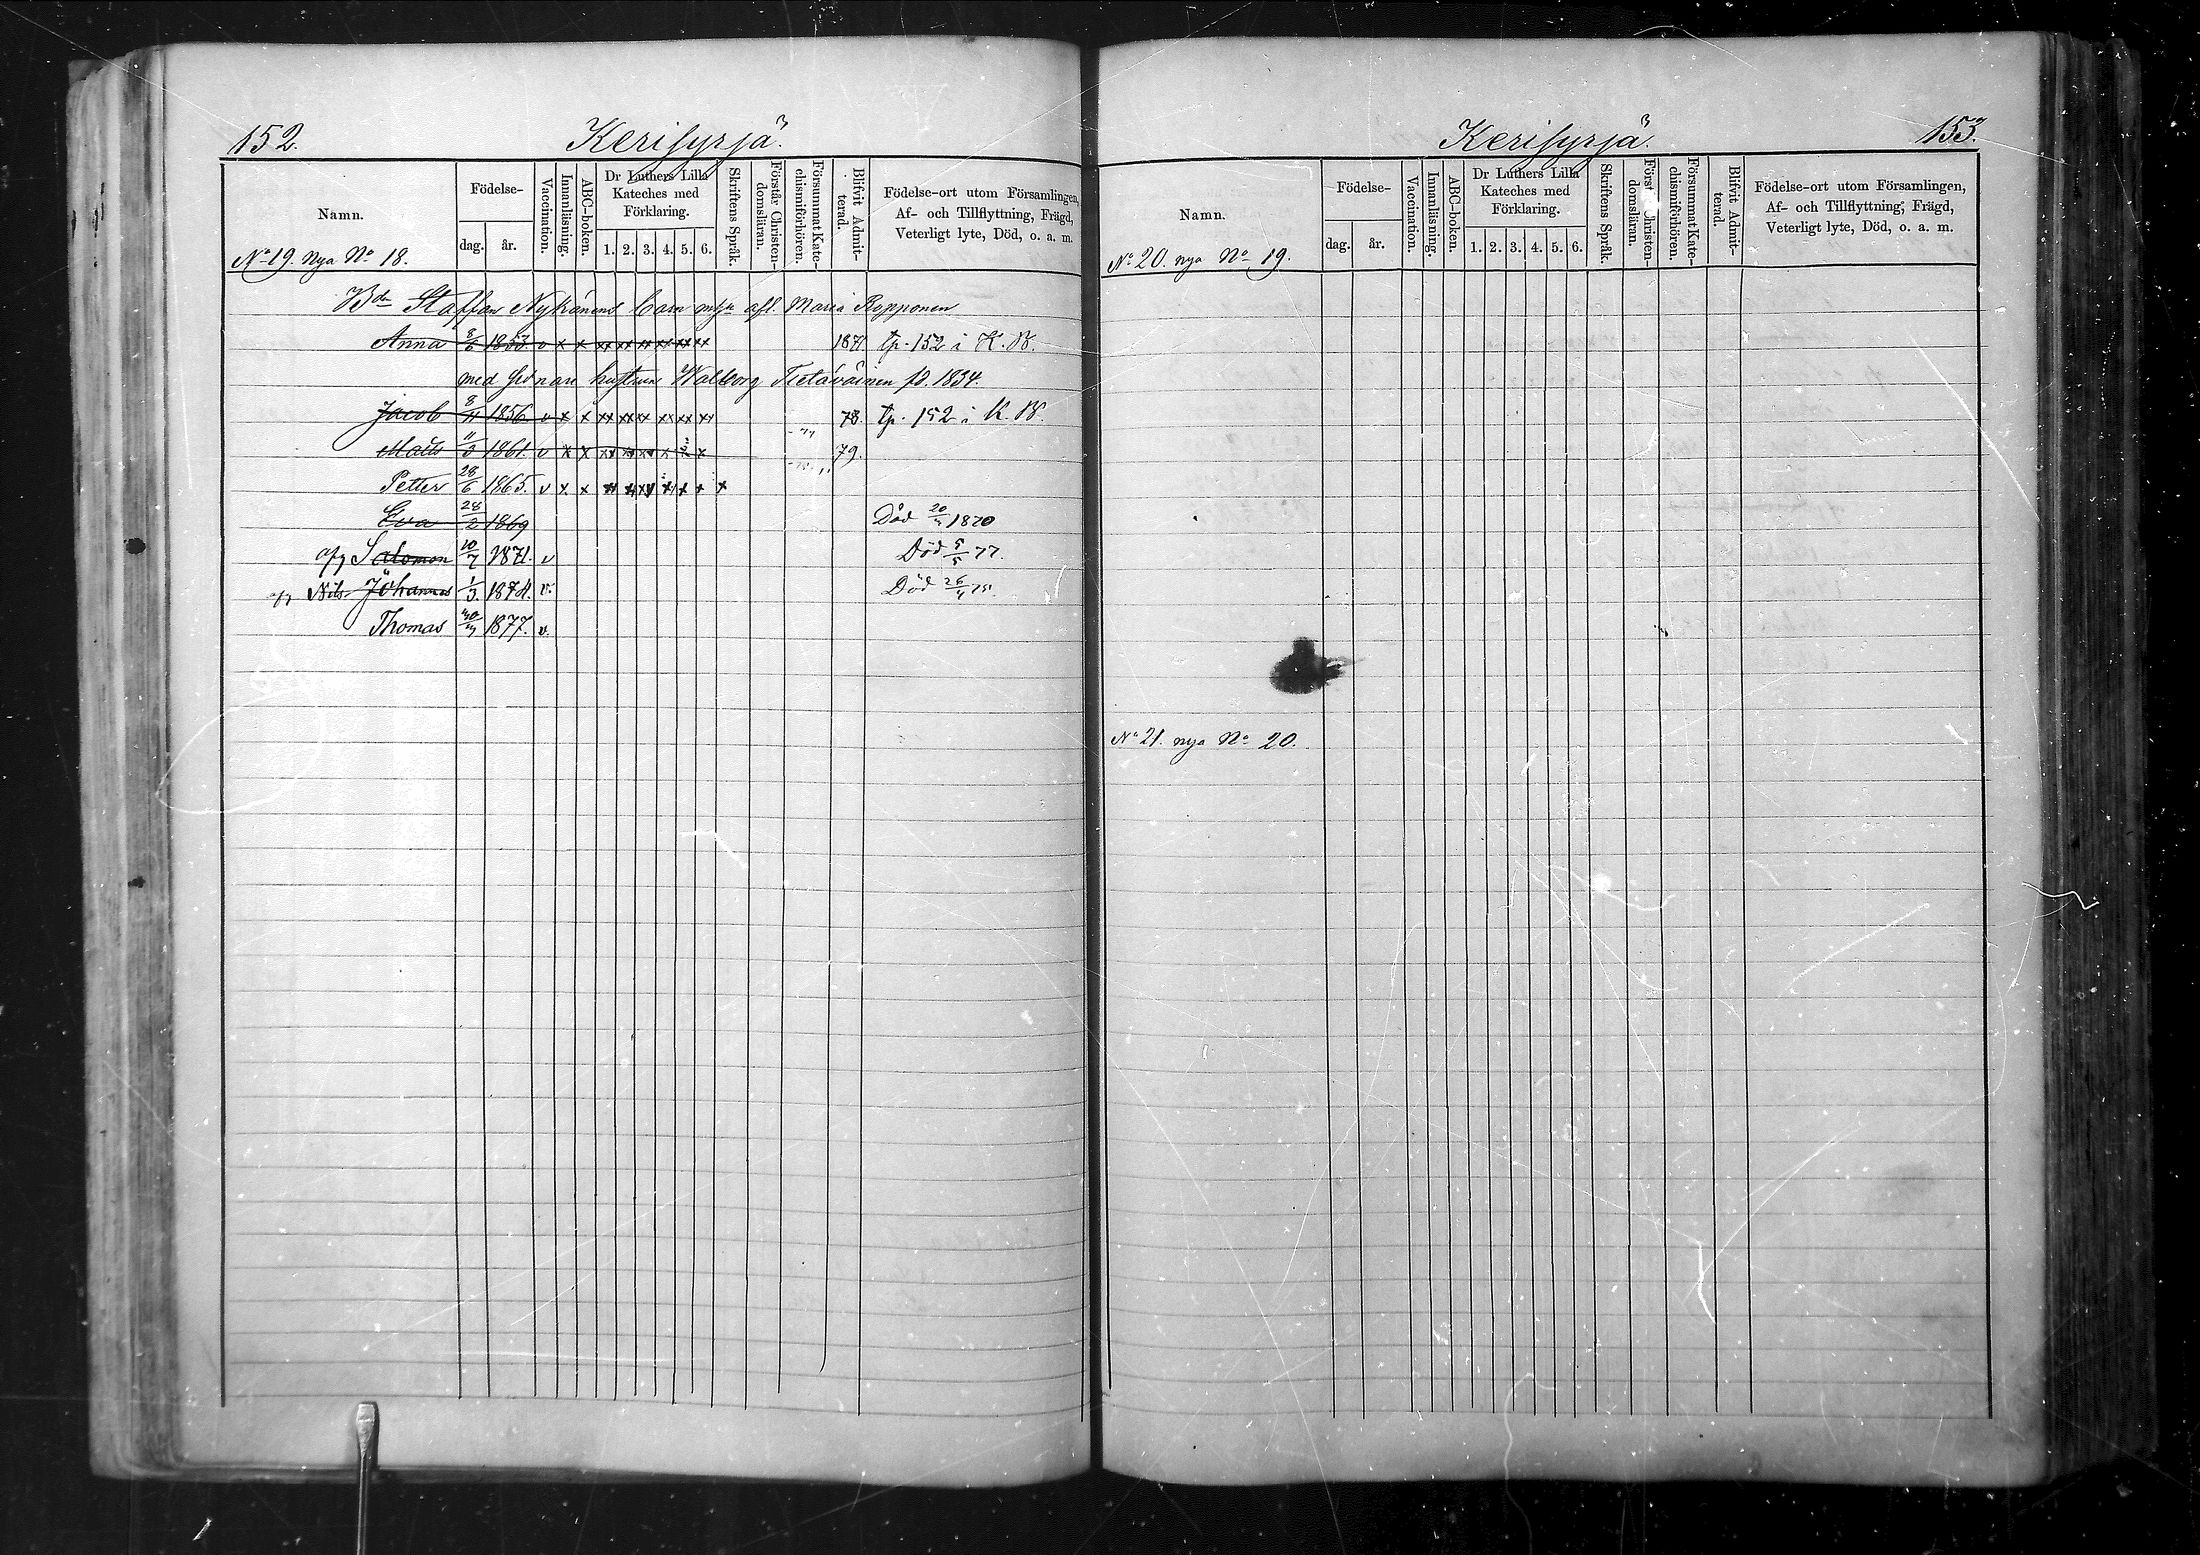 152.
Kerisyrjä.
Namn.
Födelse-
dag.
år.
Vaccination.
Innanläsning.
ABC-boken.
Dr Luthers Lilla
Kateches med
Förklaring.
1. 2. 3. 4. 5. 6.
Skriftens Språk.
Förstår Christen-
domsläran.
Försummat Kate-
chismiförhören.
Blifvit Admit-
terad.
Födelse-ort utom Församlingen,
Af- och Tillflyttning, Frägd,
Veterligt lyte, Död, o. a. m.
No 19. nya No 18.
Bdn Staffan Nykänens barn afl. Maria Ropponen
Anna 8/6 1853 v x x xx xx xx xx xx xx 1871 tp. 152 i K. B.
med sednare hustrun Walborg Tietäväinen fö. 1834.
Jacob 8/11 1856 v x x xx xx xx xx xx xx 78. tp. 152 i K. B.
Matts 11/3 1861. v x x 79.
Petter 28/6 1865. v x x
Eva 28/2 1869 Död 1870
Salomon 10/7 1871. v Död 5/5 77.
Nils Johannes 1/3 1874. v. Död 26/4 75.
Thomas 1877. v.
Kerisyrjä.
153.
Namn.
Födelse-
dag.
år.
Vaccination.
Innanläsning.
ABC-boken.
Dr Luthers Lilla
Kateches med
Förklaring.
1. 2. 3. 4. 5. 6.
Skriftens Språk.
Först Christen-
domsläran.
Försummat Kate-
chismiförhören.
Blifvit Admit-
terad.
Födelse-ort utom Församlingen,
Af- och Tillflyttning, Frägd,
Veterligt lyte, Död, o. a. m.
No 20. nya No 19.
No 21. nya No 20.